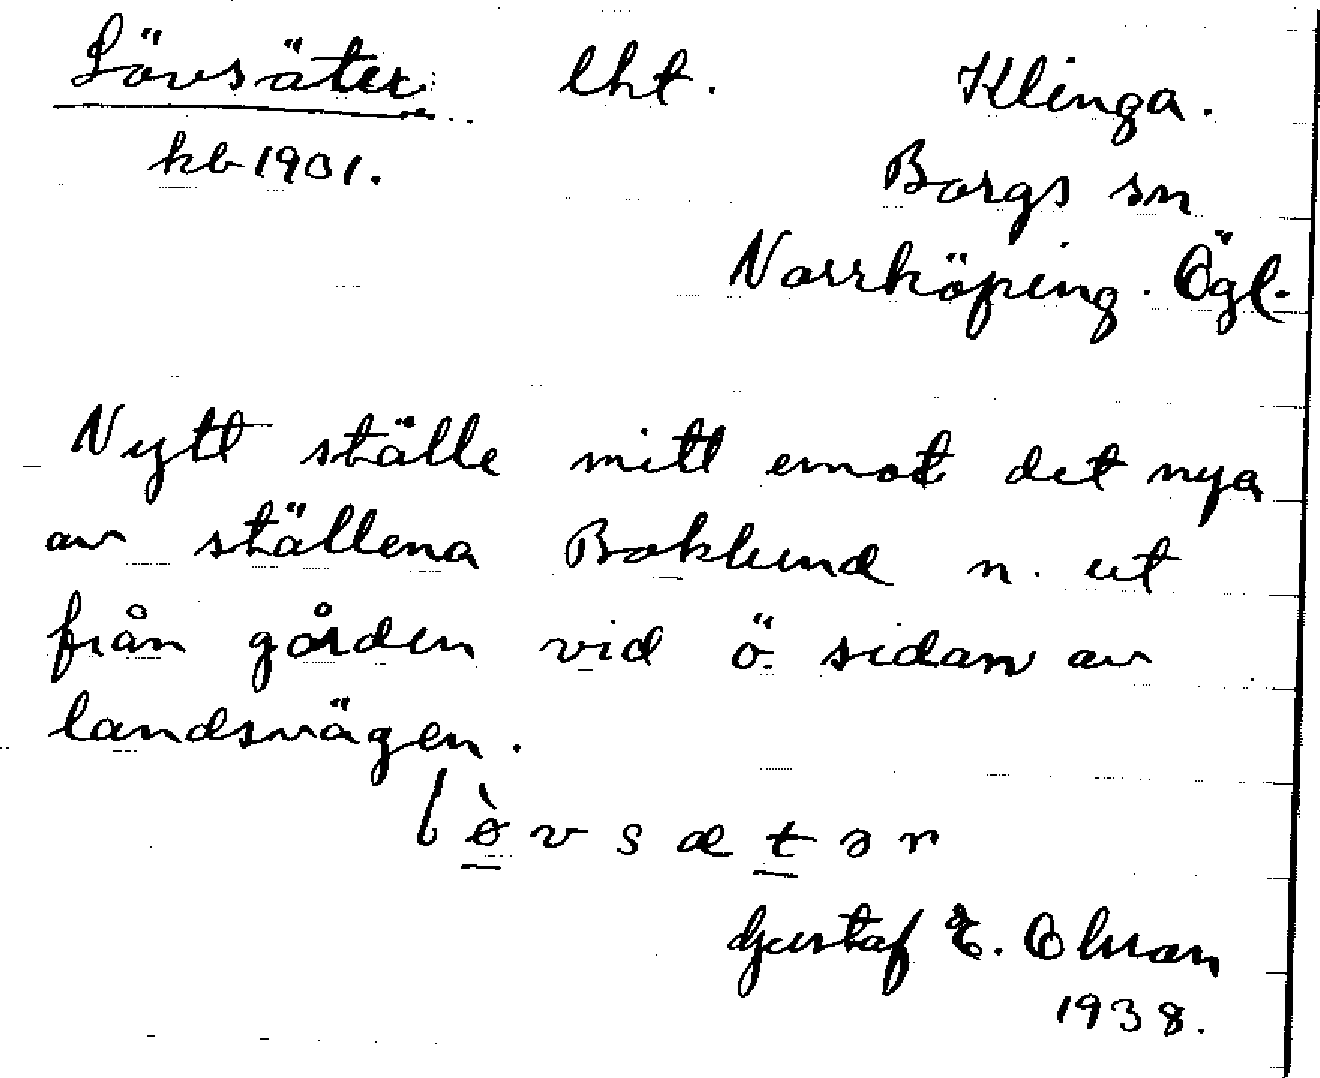 Lövsäter lht. Klinga.
kb 1901. Borgs sn
Norrköping. Ögl.
Nytt ställe mitt emot det nya
av ställena Boklund n. ut
från gården vid ö. sidan av
landsvägen.
lø̀vsætər
Gustaf E. Olsson
1938.